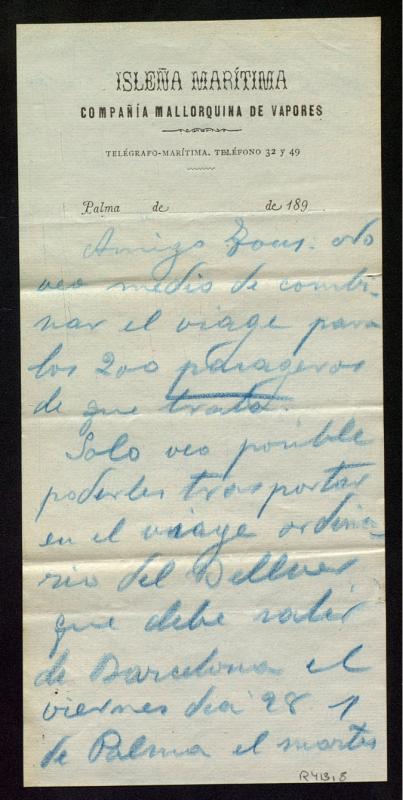 ISLEÑA MARÍTIMA
COMPAÑÍA MALLORQUINA DE VAPORES
TELÉGRAFO-MARÍTIMA. TELÉFONO 32 Y 49
Palma de de 189
Amigo Tous: No
veo medio de combi-
nar el viage para
los 200 pasageros
de que trata.
Solo veo posible
poderles trasportar
en el viage ordina
rio del Bellver
que debe salir
de Barcelona el
viernes dia 28 y
de Palma el martes
R413,8